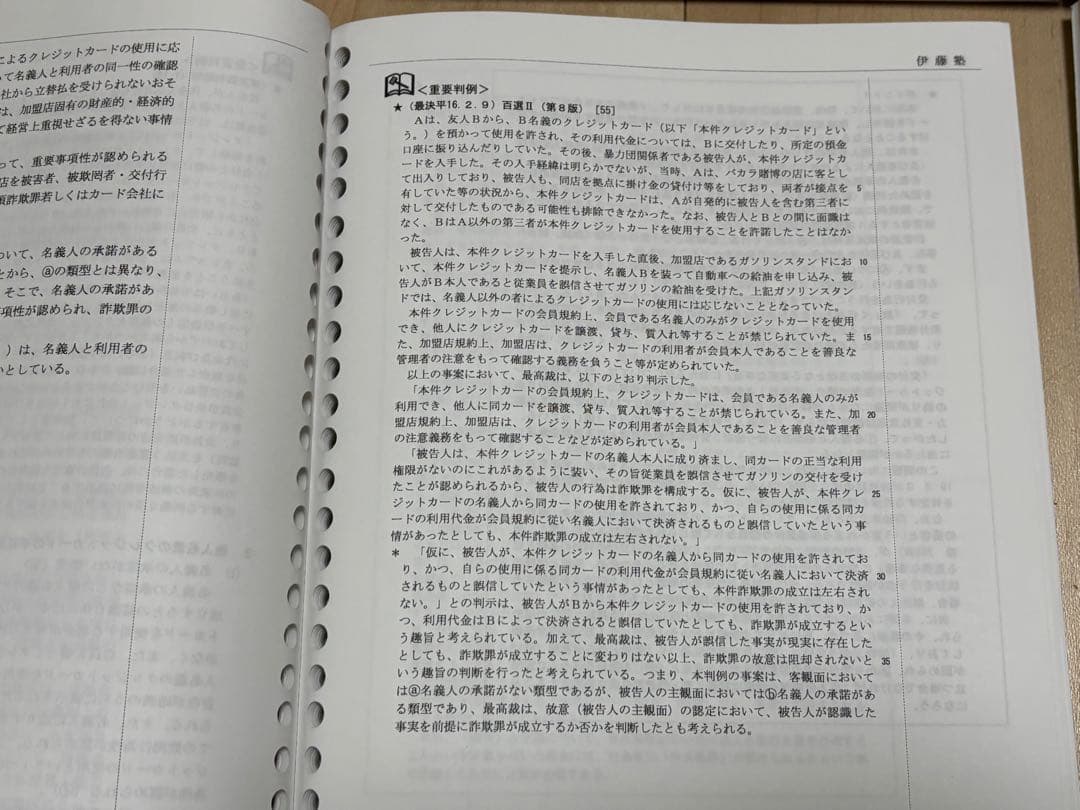 によるクレジットカードの使用に応
って名義人と利用者の同一性の確認
社から立替払を受けられないおそ
は、加盟店固有の財産的・経済的
て経営上重視せざるを得ない事情
って、重要事項性が認められる
店を被害者、被欺罔者・交付行
項詐欺罪若しくはカード会社に
ついて、名義人の承諾がある
とから、ⓐの類型とは異なり、
。そこで、名義人の承諾があ
事項性が認められ、詐欺罪の
)は、名義人と利用者の
いとしている。
伊藤塾
<重要判例>
★(最決平16.2.9)百選Ⅱ(第8版)[55]
Aは、友人Bから、B名義のクレジットカード(以下「本件クレジットカード」とい
う。)を預かって使用を許され、その利用代金については、Bに交付したり、所定の預金
口座に振り込んだりしていた。その後、暴力団関係者である被告人が、本件クレジットカ
ードを入手した。その入手経緯は明らかでないが、当時、Aは、バカラ賭博の店に客とし
て出入りしており、被告人も、同店を拠点に掛け金の貸付け等をしており、両者が接点を 5
有していた等の状況から、本件クレジットカードは、Aが自発的に被告人を含む第三者に
対して交付したものである可能性も排除できなかった。なお、被告人とBとの間に面識は
なく、BはA以外の第三者が本件クレジットカードを使用することを許諾したことはなか
った。
被告人は、本件クレジットカードを入手した直後、加盟店であるガソリンスタンドにお 10
いて、本件クレジットカードを提示し、名義人Bを装って自動車への給油を申し込み、被
告人がB本人であると従業員を誤信させてガソリンの給油を受けた。上記ガソリンスタン
ドでは、名義人以外の者によるクレジットカードの使用には応じないこととなっていた。
本件クレジットカードの会員規約上、会員である名義人のみがクレジットカードを使用
でき、他人にクレジットカードを譲渡、貸与、質入れ等することが禁じられていた。ま 15
た、加盟店規約上、加盟店は、クレジットカードの利用者が会員本人であることを善良な
管理者の注意をもって確認する義務を負うこと等が定められていた。
以上の事案において、最高裁は、以下のとおり判示した。
「本件クレジットカードの会員規約上、クレジットカードは、会員である名義人のみが
利用でき、他人に同カードを譲渡、貸与、質入れ等することが禁じられている。また、加 20
盟店規約上、加盟店は、クレジットカードの利用者が会員本人であることを善良な管理者
の注意義務をもって確認することなどが定められている。」
「被告人は、本件クレジットカードの名義人本人に成り済まし、同カードの正当な利用
権限がないのにこれがあるように装い、その旨従業員を誤信させてガソリンの交付を受け
たことが認められるから、被告人の行為は詐欺罪を構成する。仮に、被告人が、本件クレ 25
ジットカードの名義人から同カードの使用を許されており、かつ、自らの使用に係る同カ
ードの利用代金が会員規約に従い名義人において決済されるものと誤信していたという事
情があったとしても、本件詐欺罪の成立は左右されない。」
* 「仮に、被告人が、本件クレジットカードの名義人から同カードの使用を許されてお
り、かつ、自らの使用に係る同カードの利用代金が会員規約に従い名義人において決済 30
されるものと誤信していたという事情があったとしても、本件詐欺罪の成立は左右され
ない。」との判示は、被告人がBから本件クレジットカードの使用を許されており、か
つ、利用代金はBによって決済されると誤信していたとしても、詐欺罪が成立するとい
う趣旨と考えられている。加えて、最高裁は、被告人が誤信した事実が現実に存在した
としても、詐欺罪が成立することに変わりはない以上、詐欺罪の故意は阻却されないと 35
いう趣旨の判断を行ったと考えられている。つまり、本判例の事案は、客観面において
はⓐ名義人の承諾がない類型であるが、被告人の主観面においてはⓑ名義人の承諾があ
る類型であり、最高裁は、故意(被告人の主観面)の認定において、被告人が認識した
事実を前提に詐欺罪が成立するか否かを判断したとも考えられる。